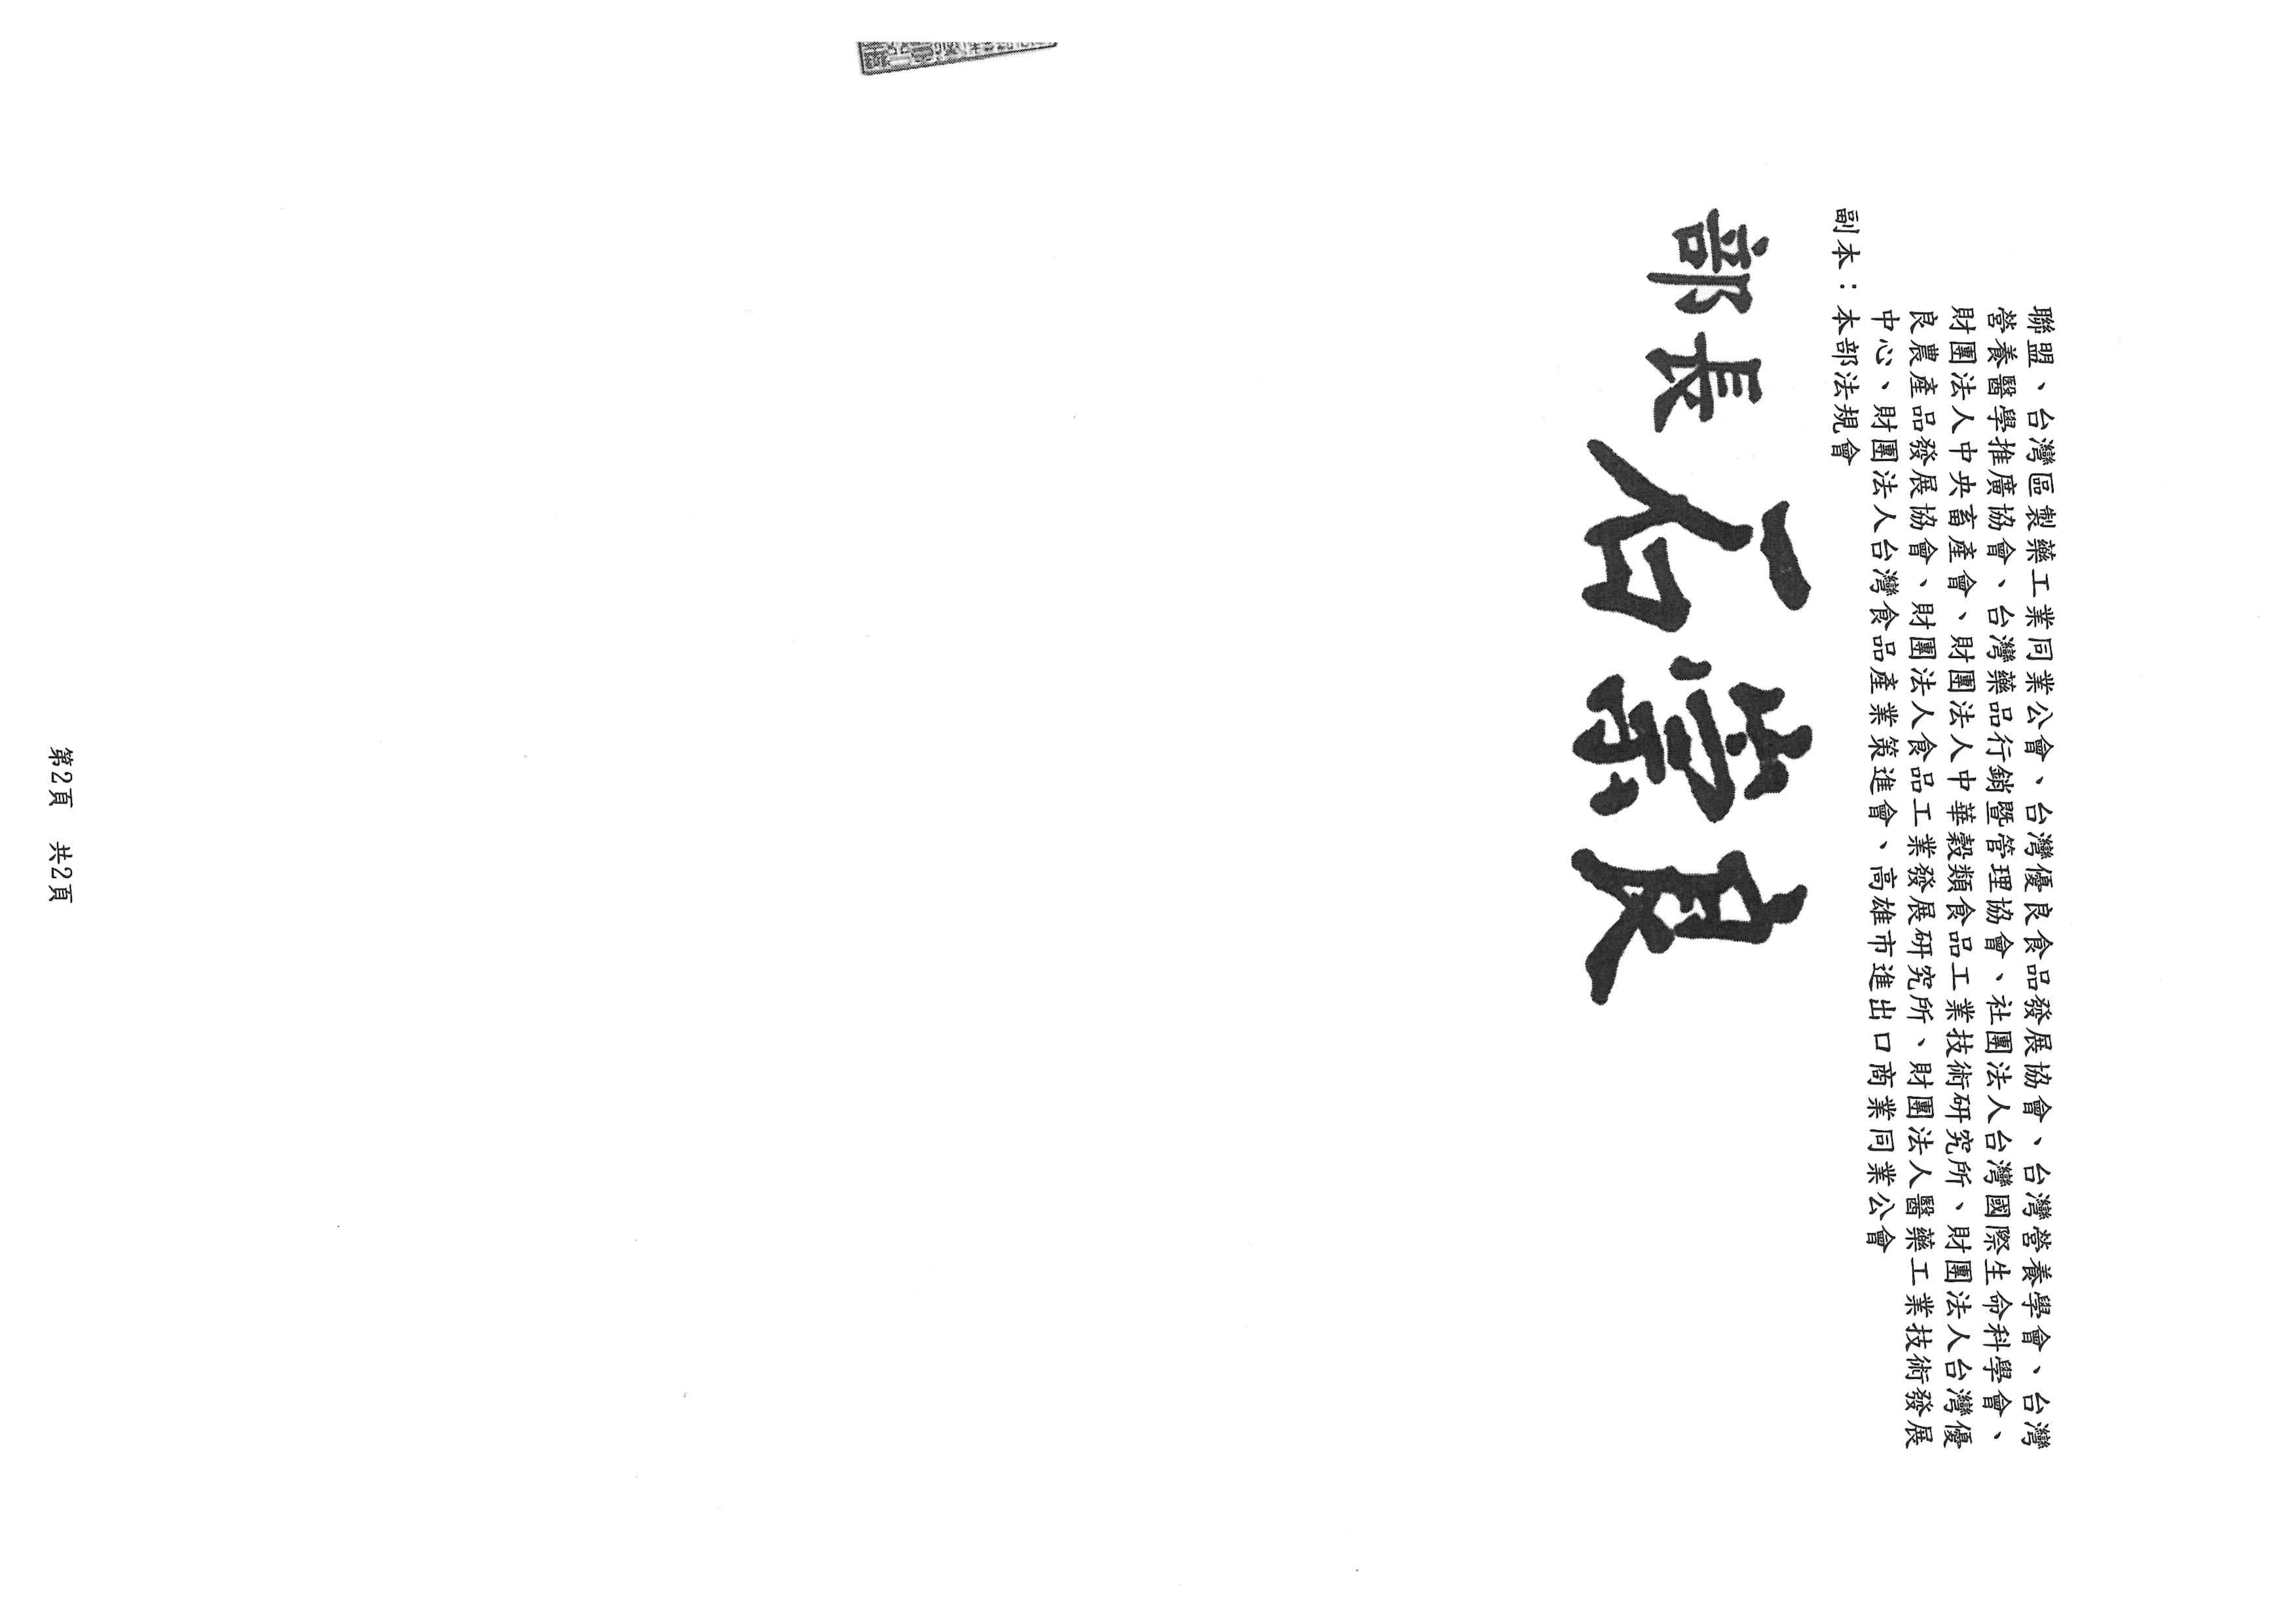 聯盟、台灣區製藥工業同業公會、台灣優良食品發展協會、台灣營養學會、台灣
營養醫學推廣協會、台灣藥品行銷暨管理協會、社團法人台灣國際生命科學會、
財團法人中央畜產會、財團法人中華穀類食品工業技術研究所、財團法人台灣優
良農產品發展協會、財團法人食品工業發展研究所、財團法人醫藥工業技術發展
中心、財團法人台灣食品產業策進會、高雄市進出口商業同業公會
副本：本部法規會
部長 石崇良
第2頁 共2頁